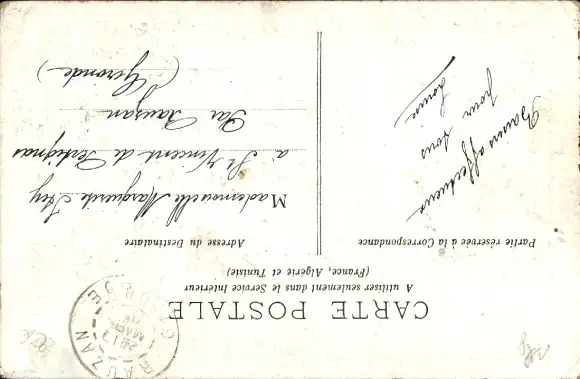 CARTE POSTALE
A utiliser seulement dans le Service Intérieur
(France, Algérie et Tunisie)
Partie réservée à la Correspondance
Baisers affectueux
pour tous
Louise
Adresse du Destinataire
Mademoiselle Marguerite
à St Vincent de Pertignas
Par Rauzan
(Gironde)
RAUZAN
GIRONDE